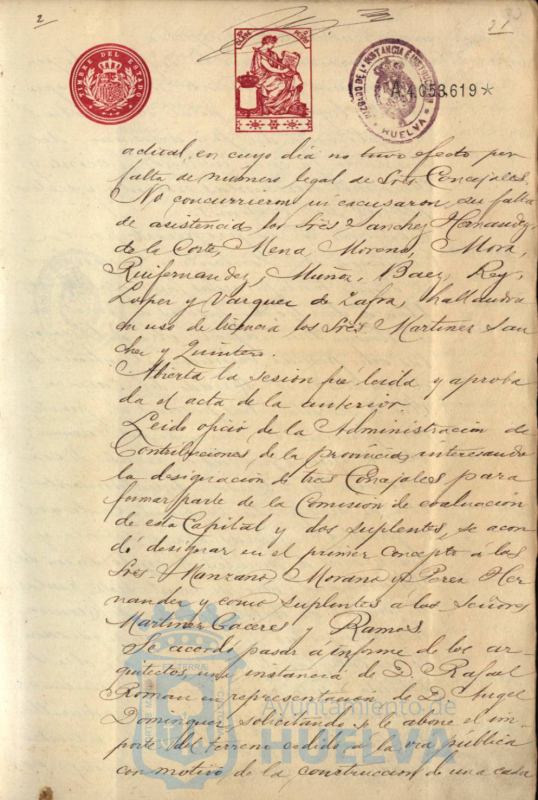 2
21
TIMBRE DEL ESTADO
JUZGADO DE 1ª INSTANCIA E INSTRUCCION
HUELVA
A.4.053.619*
actual, en cuyo dia no tuvo efecto por
falta de numero legal de Sres Concejales.
No concurrieron ni excusaron su falta
de asistencia los Sres Sanchez Hernandez,
de la Corte, Mena, Moreno, Mora,
Ruifernandez, Muñoz, Baez, Rey,
Lopez y Vazquez de Zafra, hallandose
en uso de licencia los Sres Martinez San
chez y Quintero.
Abierta la sesion fué leida y aproba
da el acta de la anterior.
Leido oficio de la Administracion de
Contribuciones de la provincia, interesando
la designacion de tres Concejales para
formar parte de la Comision de evaluacion
de esta Capital y dos suplentes, se acor
dó designar en el primer concepto á los
Sres Manzano, Morano y Perez Her
nandez y como suplentes á los Señores
Martinez Caceres y Ramos.
Se acordó pasar á informe de los ar
quitectos una instancia de D. Rafael
Roman en representacion de D. Angel
Dominguez solicitando se le abone el im
porte del terreno cedido á la via pública
con motivo de la construccion de una casa
Ayuntamiento de
HUELVA